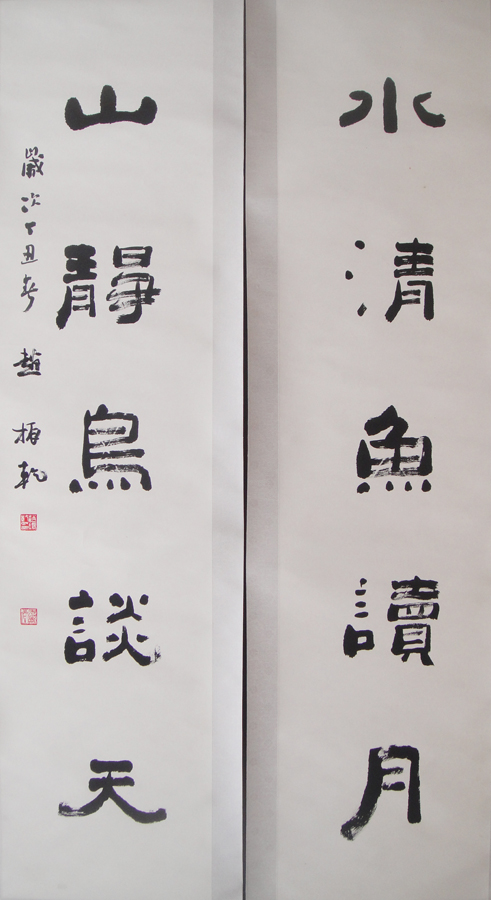 水清魚讀月
山靜鳥談天
歲次丁丑春 趙